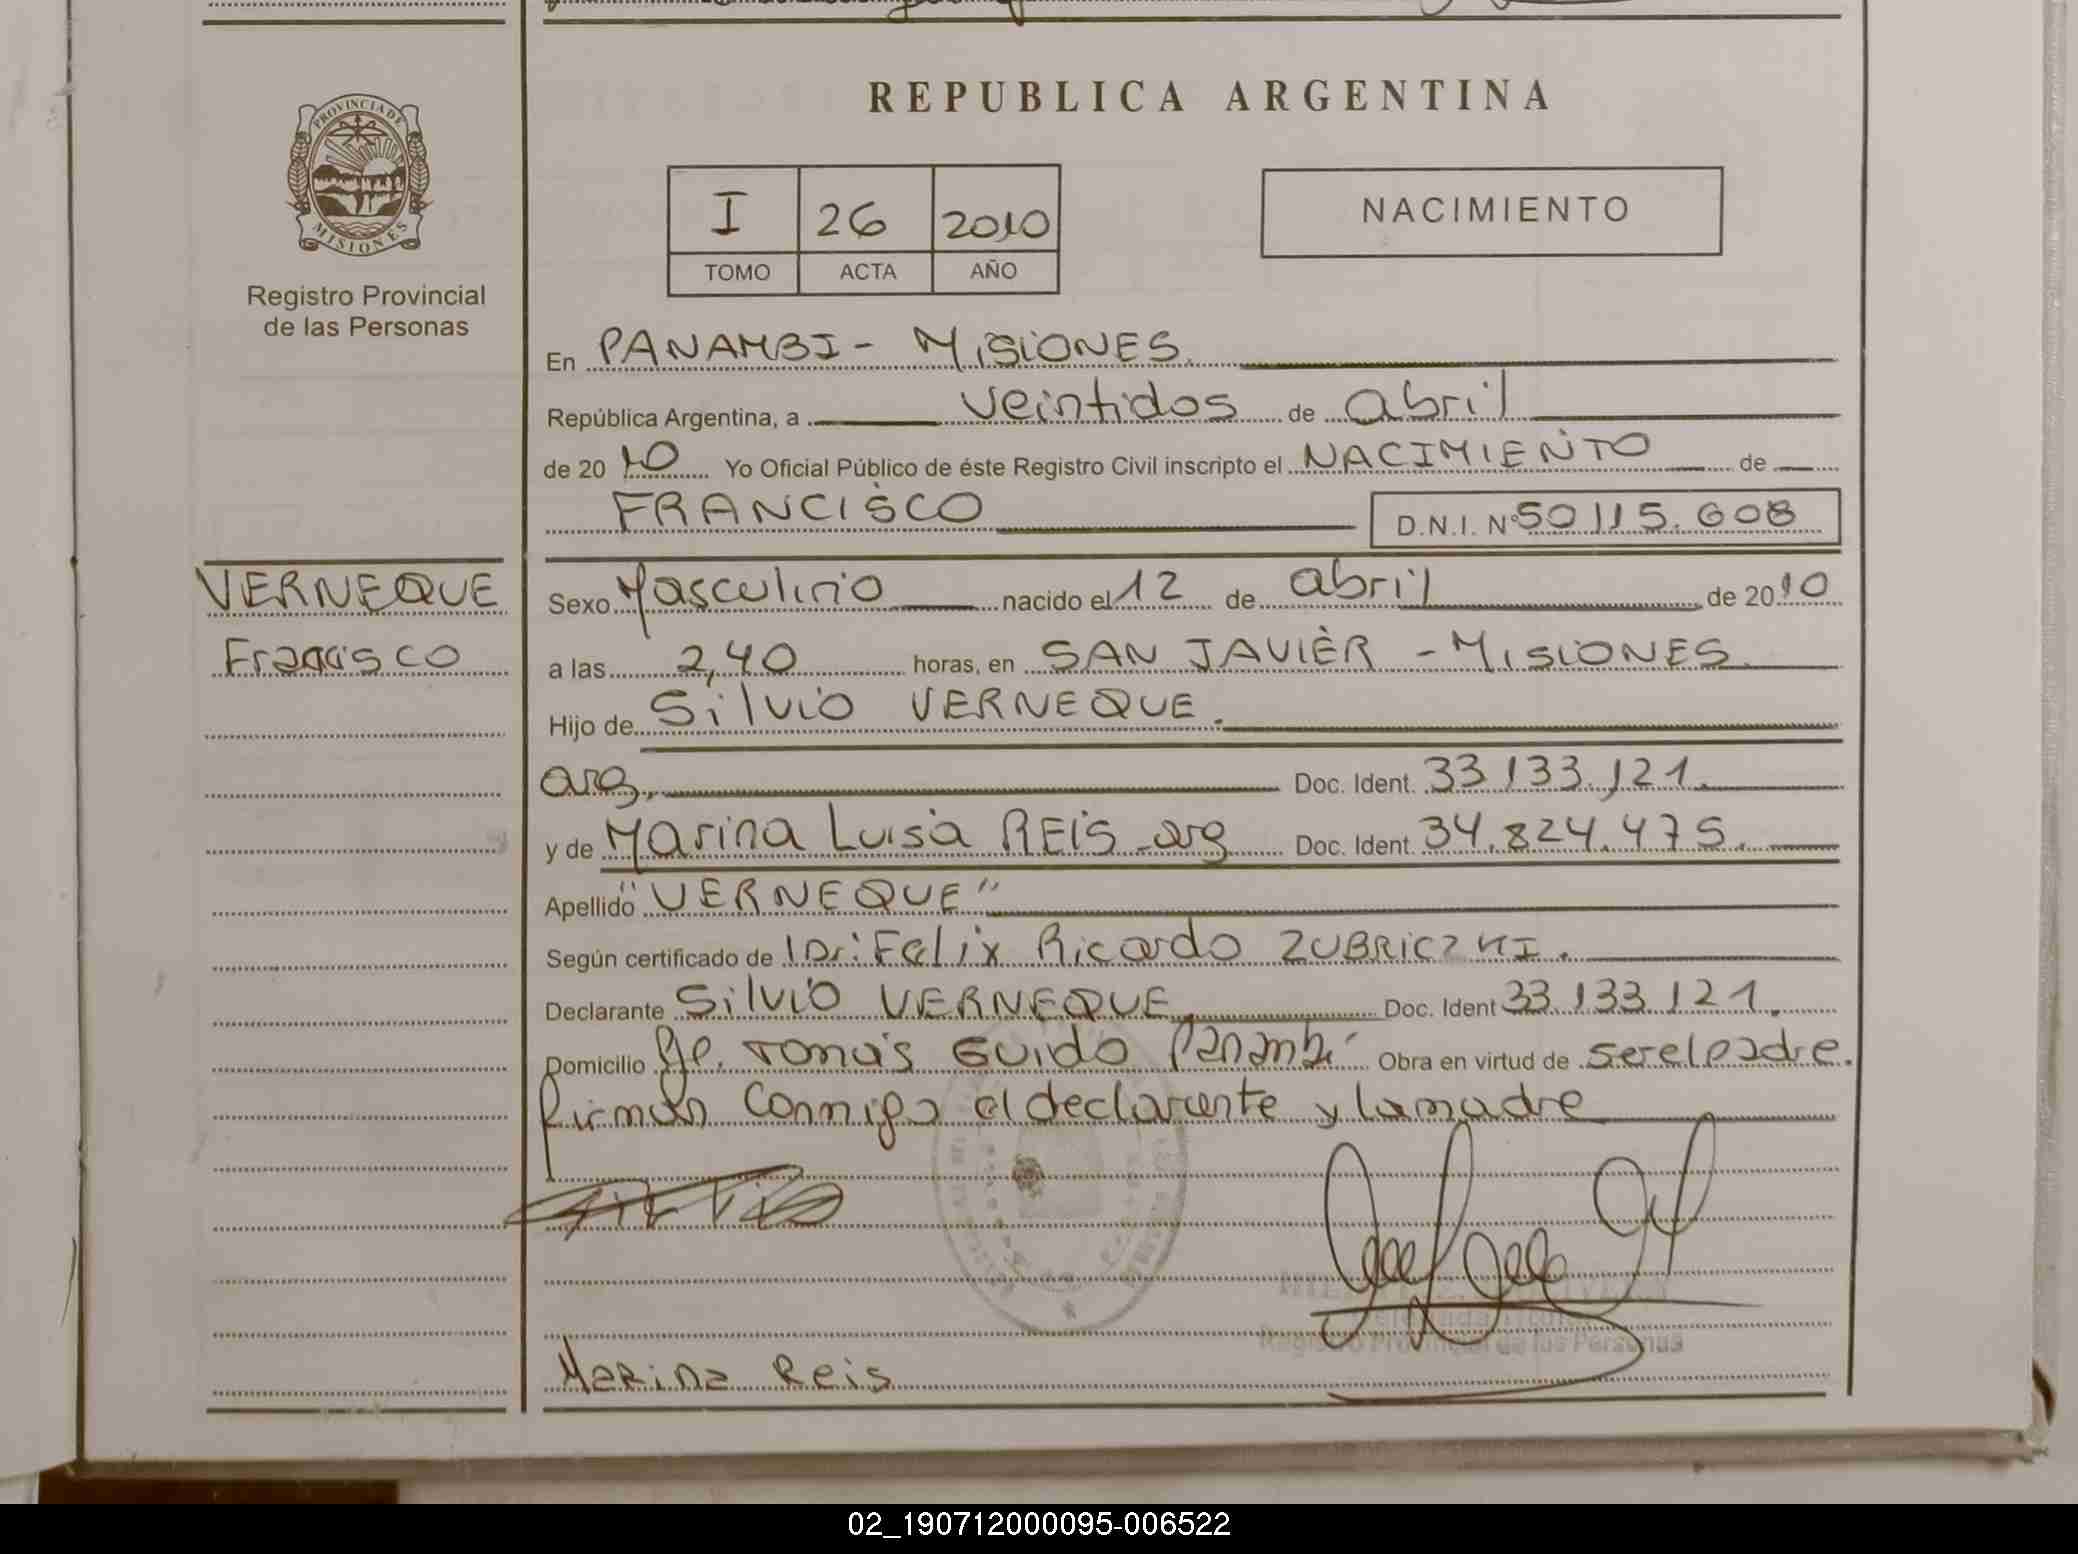 REPUBLICA ARGENTINA
PROVINCIA DE
MISIONES
Registro Provincial
de las Personas
I 26 2010
TOMO ACTA AÑO
NACIMIENTO
En PANAMBI - MISIONES
República Argentina, a veintidos de abril
de 2010 Yo Oficial Público de éste Registro Civil inscripto el NACIMIENTO de
FRANCISCO D.N.I. Nº 50115.608
VERNEQUE
Francisco
Sexo Masculino nacido el 12 de abril de 2010
a las 2,40 horas, en SAN JAVIER - MISIONES.
Hijo de Silvio VERNEQUE.
arg, Doc. Ident. 33133.121.
y de Marina Luisa REIS - arg Doc. Ident. 34.824.475.
Apellido "VERNEQUE"
Según certificado de Dr: Felix Ricardo ZUBRICZKI.
Declarante Silvio VERNEQUE, Doc. Ident 33.133.121.
Domicilio Tomás Guido Panambí Obra en virtud de ser el padre.
firman conmigo el declarante y la madre
Registro Provincial de las Personas
Marina Reis
02_190712000095-006522